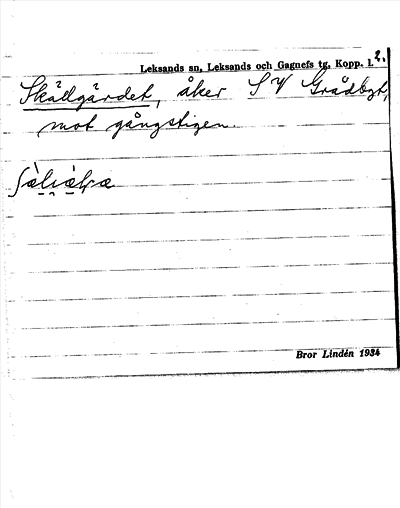 Leksands sn, Leksands och Gagnefs tg, Kopp. l. 2.
Skällgärdet, åker S V Gråd
mot gångstigen.
Bror Lindén 1934